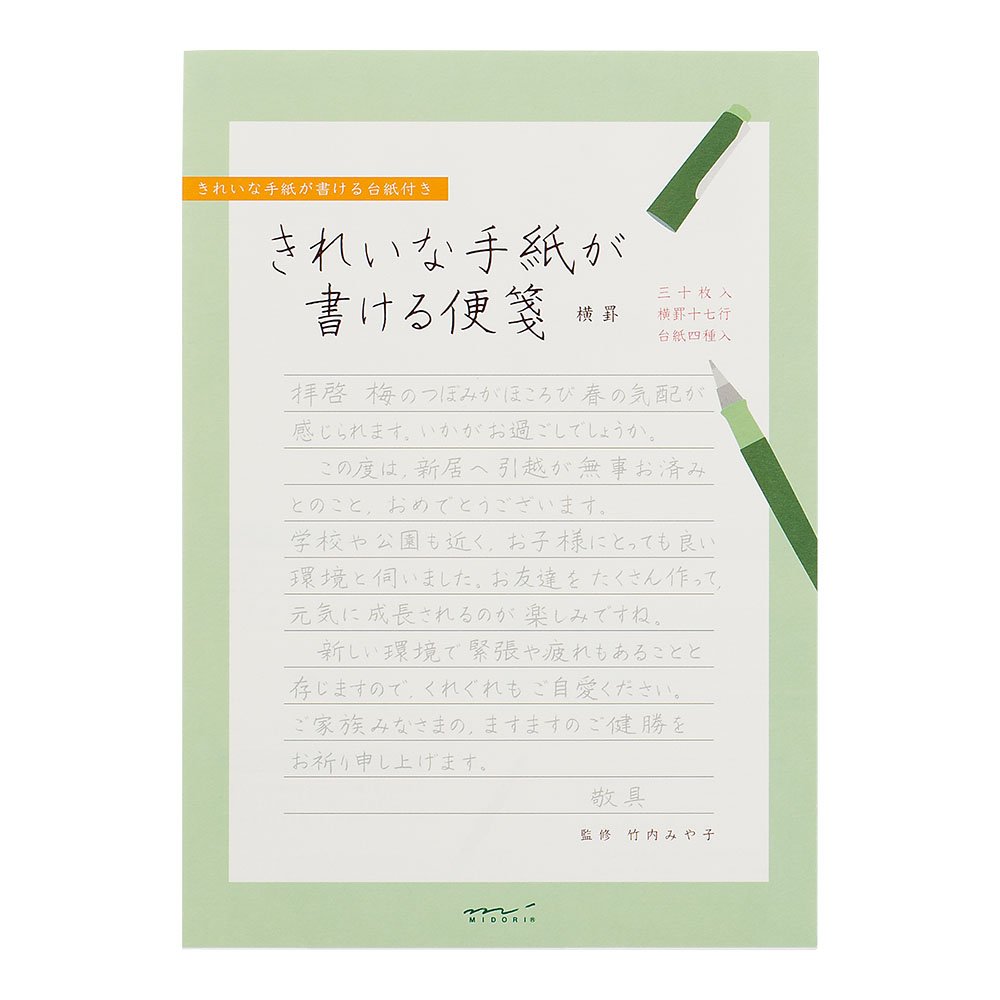 きれいな手紙が書ける台紙付き
きれいな手紙が
書ける便箋 横罫
三十枚入
横罫十七行
台紙四種入
拝啓 梅のつぼみがほころび春の気配が
感じられます。いかがお過ごしでしょうか。
この度は、新居へ引越が無事お済み
とのこと、おめでとうございます。
学校や公園も近く、お子様にとっても良い
環境と伺いました。お友達をたくさん作って、
元気に成長されるのが楽しみですね。
新しい環境で緊張や疲れもあることと
存じますので、くれぐれもご自愛ください。
ご家族みなさまの、ますますのご健勝を
お祈り申し上げます。
敬具
監修 竹内みや子
MIDORI®